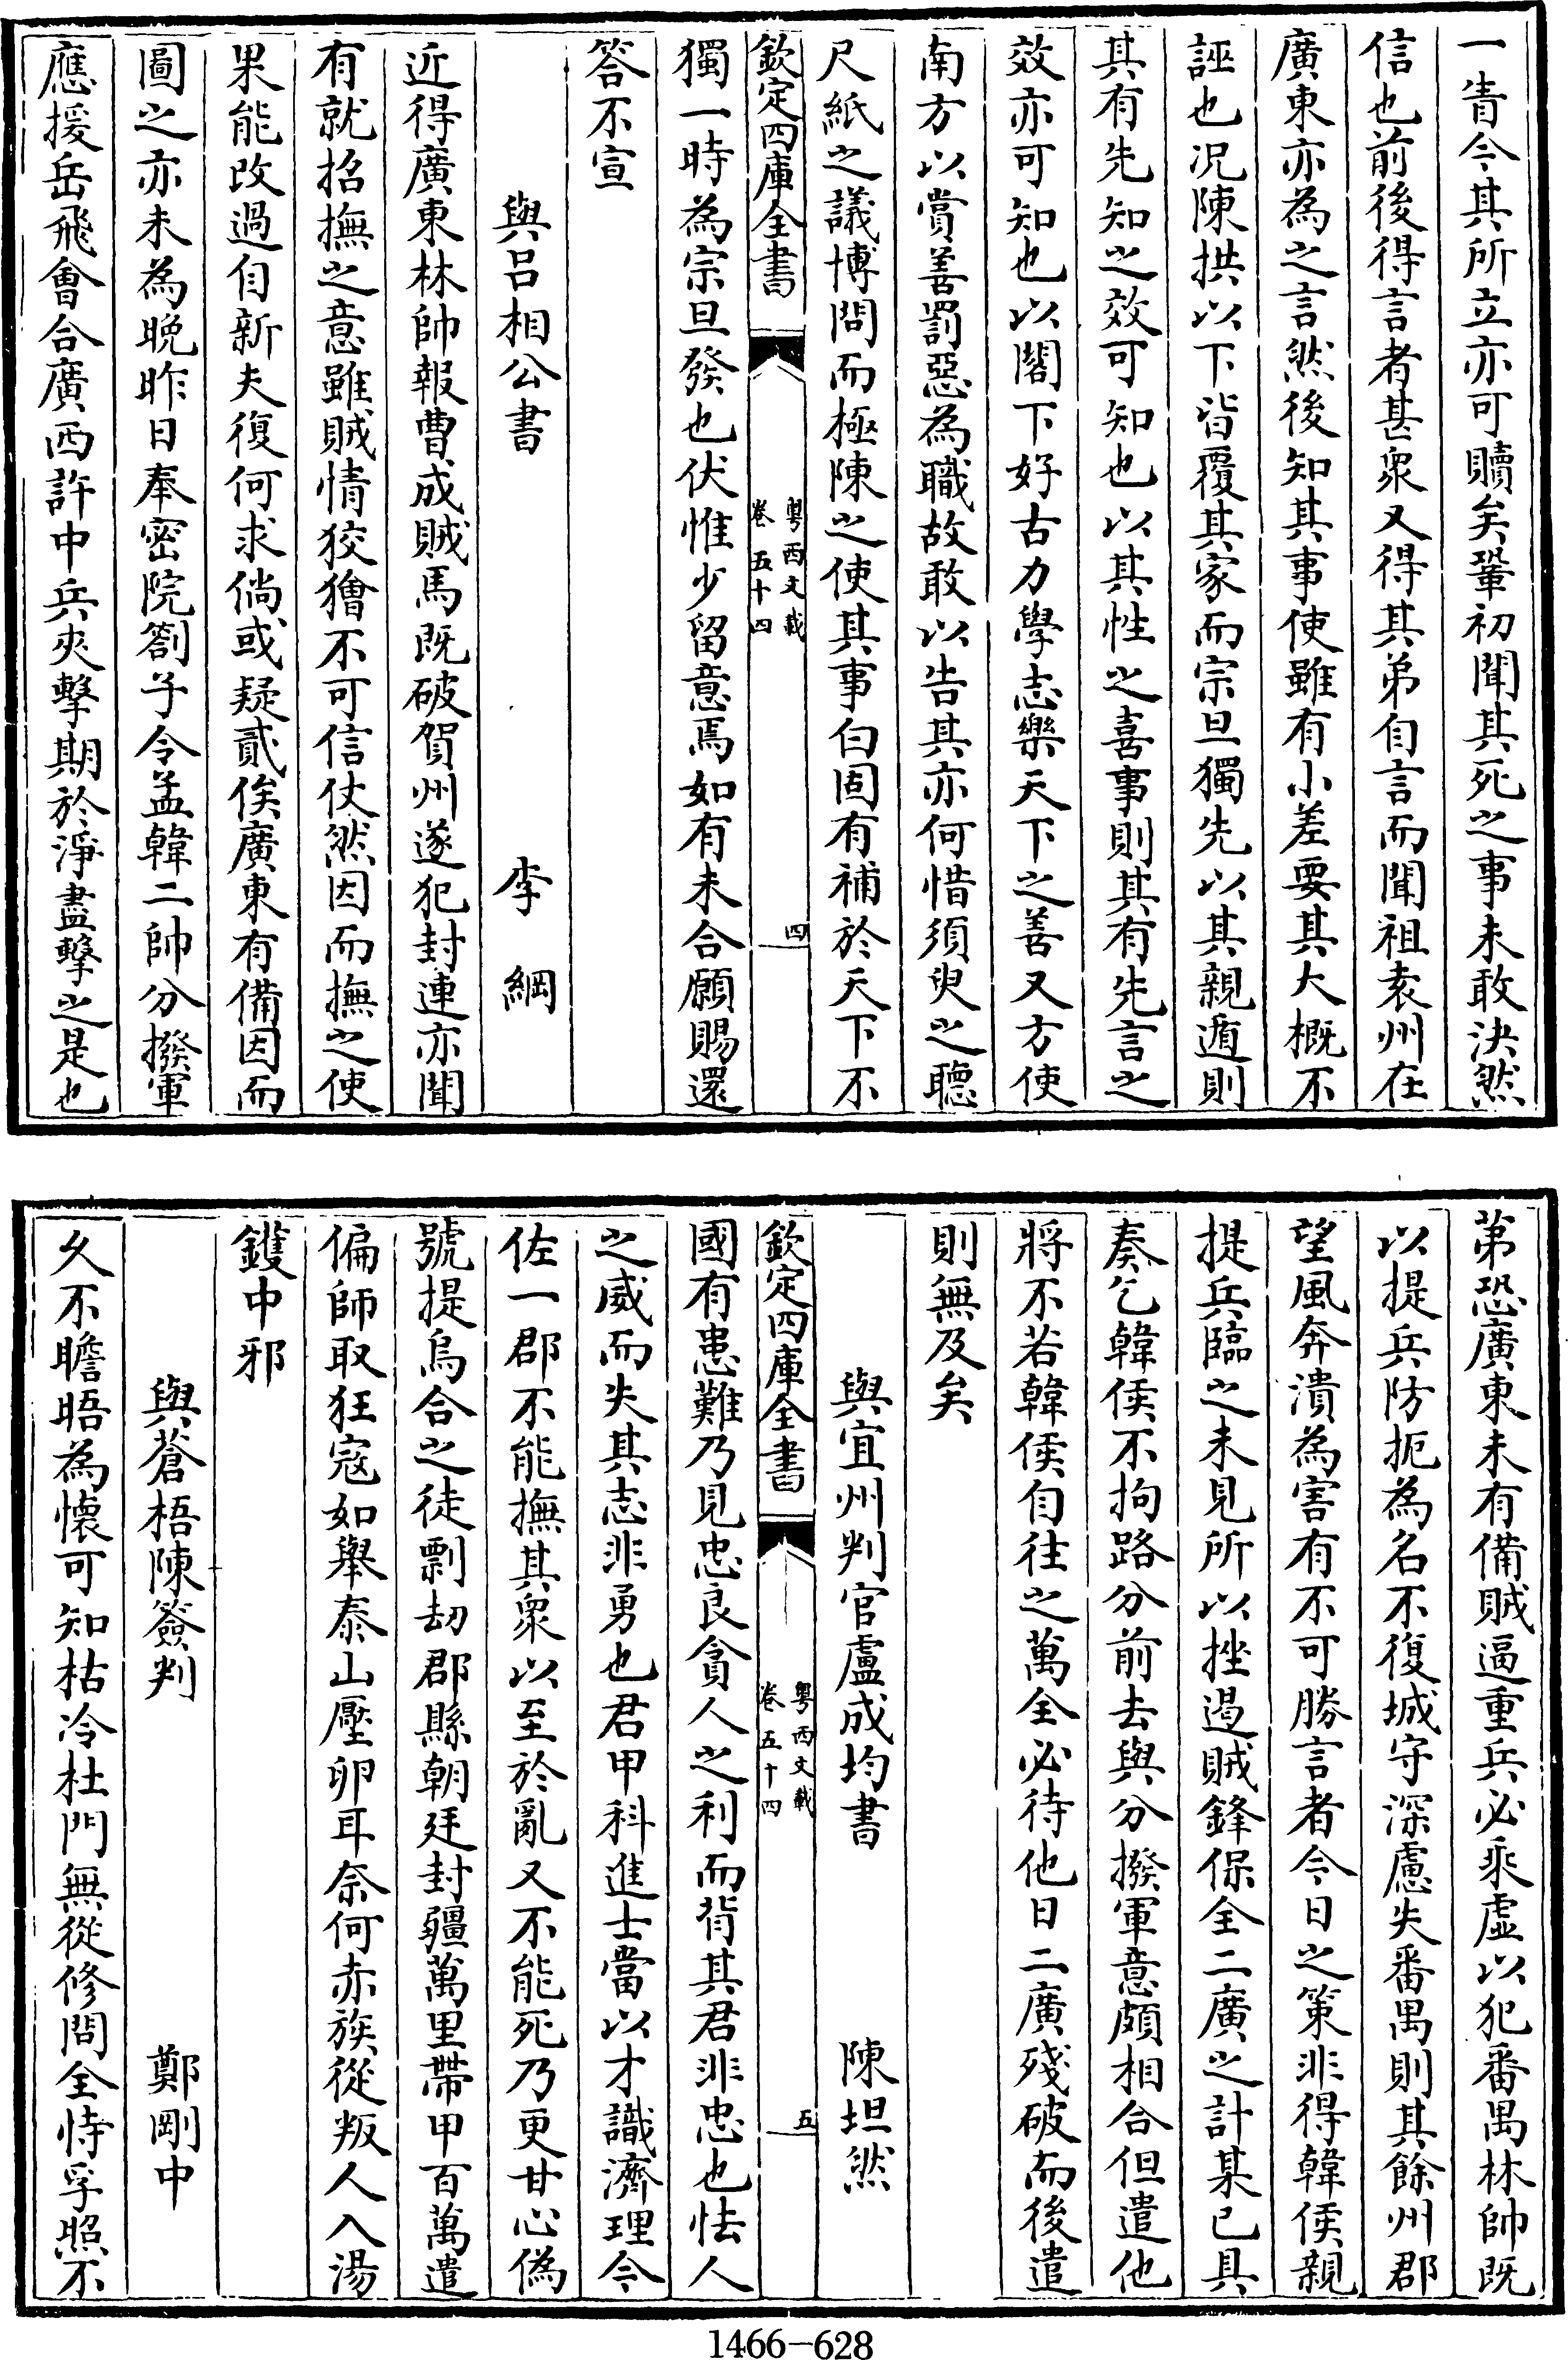 一眚今其所立亦可贖矣鞏初聞其死之事未敢決然
信也前後得言者甚衆又得其弟自言而聞祖袁州在
廣東亦為之言然後知其事使雖有小差要其大概不
誣也况陳拱以下皆覆其家而宗旦獨先以其親遁則
其有先知之效可知也以其性之喜事則其有先言之
效亦可知也以閣下好古力學志樂天下之善又方使
南方以賞善罰惡為職故敢以告其亦何惜須臾之聽
尺紙之議博問而極陳之使其事白固有補於天下不
欽定四庫全書
粤西文載
卷五十四
四
獨一時為宗旦發也伏惟少留意焉如有未合願賜還
答不宣
與呂相公書 李綱
近得廣東林帥報曹成賊馬既破賀州遂犯封連亦聞
有就招撫之意雖賊情狡獪不可信仗然因而撫之使
果能改過自新夫復何求倘或疑貳俟廣東有備因而
圖之亦未為晚昨日奉密院劄子令孟韓二帥分撥軍
應援岳飛會合廣西許中兵夾擊期於淨盡擊之是也
第恐廣東未有備賊逼重兵必乘虛以犯番禺林帥既
以提兵防扼為名不復城守深慮失番禺則其餘州郡
望風奔潰為害有不可勝言者今日之策非得韓侯親
提兵臨之未見所以挫遏賊鋒保全二廣之計某已具
奏乞韓侯不拘路分前去與分撥軍意頗相合但遣他
將不若韓侯自往之萬全必待他日二廣殘破而後遣
則無及矣
與宜州判官盧成均書 陳坦然
欽定四庫全書
粤西文載
卷五十四
五
國有患難乃見忠良貪人之利而背其君非忠也怯人
之威而失其志非勇也君甲科進士當以才識濟理今
佐一郡不能撫其衆以至於亂又不能死乃更甘心偽
號提烏合之徒剽劫郡縣朝廷封疆萬里帶甲百萬遣
偏師取狂寇如舉泰山壓卵耳奈何赤族從叛人入湯
鑊中邪
與蒼梧陳簽判 鄭剛中
久不瞻晤為懷可知枯冷杜門無從修問全恃孚照不
1466-628